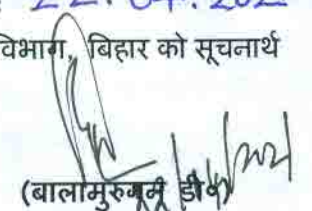 22.04.202
विभाग, बिहार को सूचनार्थ
(बालामुरुगन डी०)